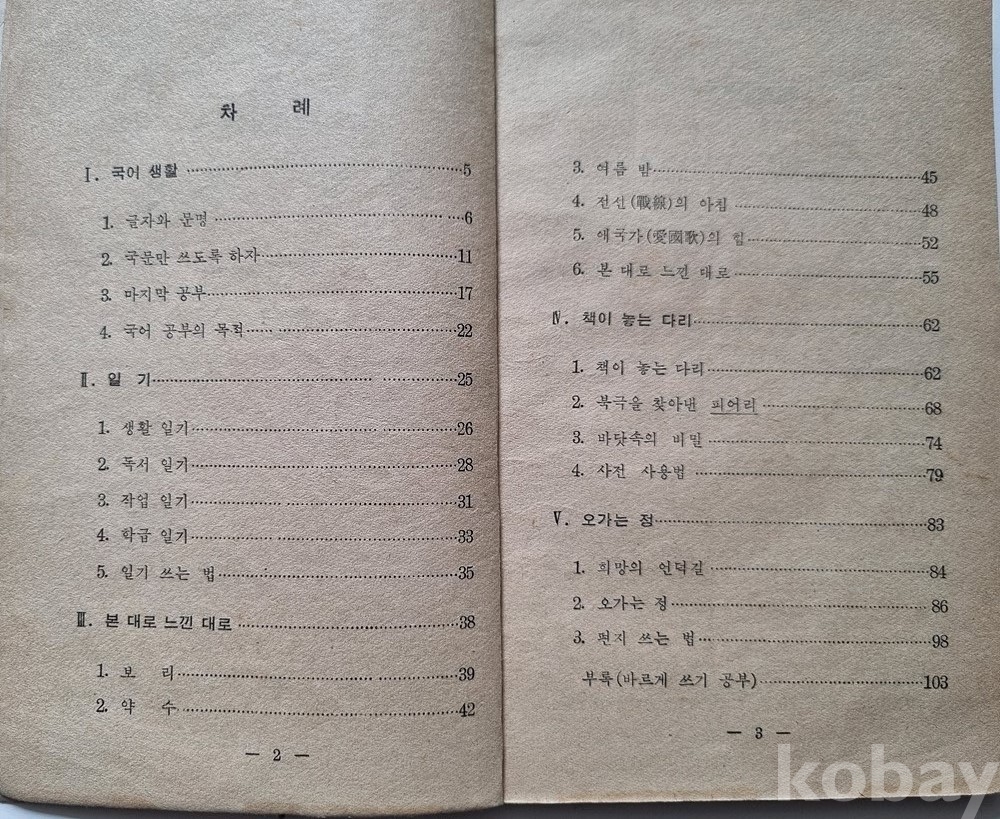 차 례
Ⅰ. 국어 생활 5
1. 글자와 문명 6
2. 국문만 쓰도록 하자 11
3. 마지막 공부 17
4. 국어 공부의 목적 22
Ⅱ. 일 기 25
1. 생활 일기 26
2. 독서 일기 28
3. 작업 일기 31
4. 학급 일기 33
5. 일기 쓰는 법 35
Ⅲ. 본 대로 느낀 대로 38
1. 보 리 39
2. 약 수 42
— 2 —
3. 여름 밤 45
4. 전선(戰線)의 아침 48
5. 애국가(愛國歌)의 힘 52
6. 본 대로 느낀 대로 55
Ⅳ. 책이 놓는 다리 62
1. 책이 놓는 다리 62
2. 북극을 찾아낸 피어리 68
3. 바닷속의 비밀 74
4. 사전 사용법 79
Ⅴ. 오가는 정 83
1. 희망의 언덕길 84
2. 오가는 정 86
3. 편지 쓰는 법 98
부록(바르게 쓰기 공부) 103
— 3 —
kobay